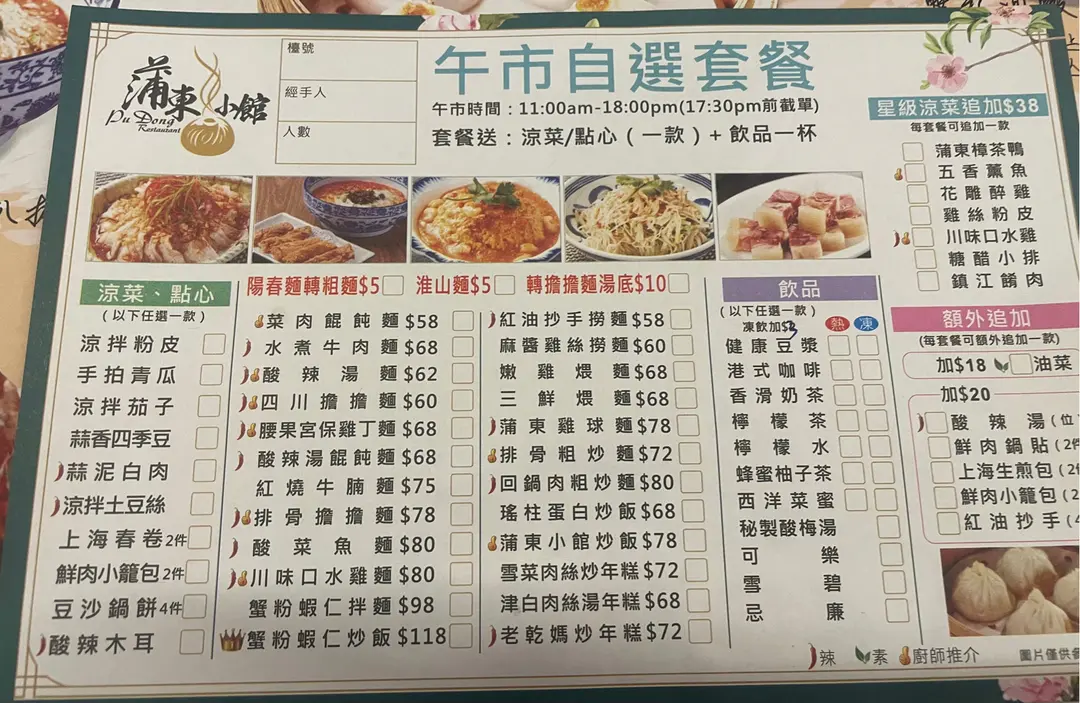 蒲東小館
Pu Dong
Restaurant
檯號
經手人
人數
午市自選套餐
午市時間：11:00am-18:00pm(17:30pm前截單)
套餐送：涼菜/點心（一款）+ 飲品一杯
星級涼菜追加$38
每套餐可追加一款
蒲東樟茶鴨
五香薰魚
花雕醉雞
雞絲粉皮
川味口水雞
糖醋小排
鎮江餚肉
涼菜、點心
（以下任選一款）
涼拌粉皮
手拍青瓜
涼拌茄子
蒜香四季豆
蒜泥白肉
涼拌土豆絲
上海春卷2件
鮮肉小籠包2件
豆沙鍋餅4件
酸辣木耳
陽春麵轉粗麵$5 淮山麵$5 轉擔擔麵湯底$10
菜肉餛飩麵$58
水煮牛肉麵$68
酸辣湯麵$62
四川擔擔麵$60
腰果宮保雞丁麵$68
酸辣湯餛飩麵$68
紅燒牛腩麵$75
排骨擔擔麵$78
酸菜魚麵$80
川味口水雞麵$80
蟹粉蝦仁拌麵$98
蟹粉蝦仁炒飯$118
紅油抄手撈麵$58
麻醬雞絲撈麵$60
嫩雞煨麵$68
三鮮煨麵$68
蒲東雞球麵$78
排骨粗炒麵$72
回鍋肉粗炒麵$80
瑤柱蛋白炒飯$68
蒲東小館炒飯$78
雪菜肉絲炒年糕$72
津白肉絲湯年糕$68
老乾媽炒年糕$72
飲品
（以下任選一款）
凍飲加$3 熱 凍
健康豆漿
港式咖啡
香滑奶茶
檸檬茶
檸檬水
蜂蜜柚子茶
西洋菜蜜
秘製酸梅湯
可樂
雪碧
忌廉
額外追加
(每套餐可額外追加一款)
加$18 油菜
加$20
酸辣湯(位
鮮肉鍋貼(2件
上海生煎包(2
鮮肉小籠包(2
紅油抄手(4
辣 素 廚師推介 圖片僅供參